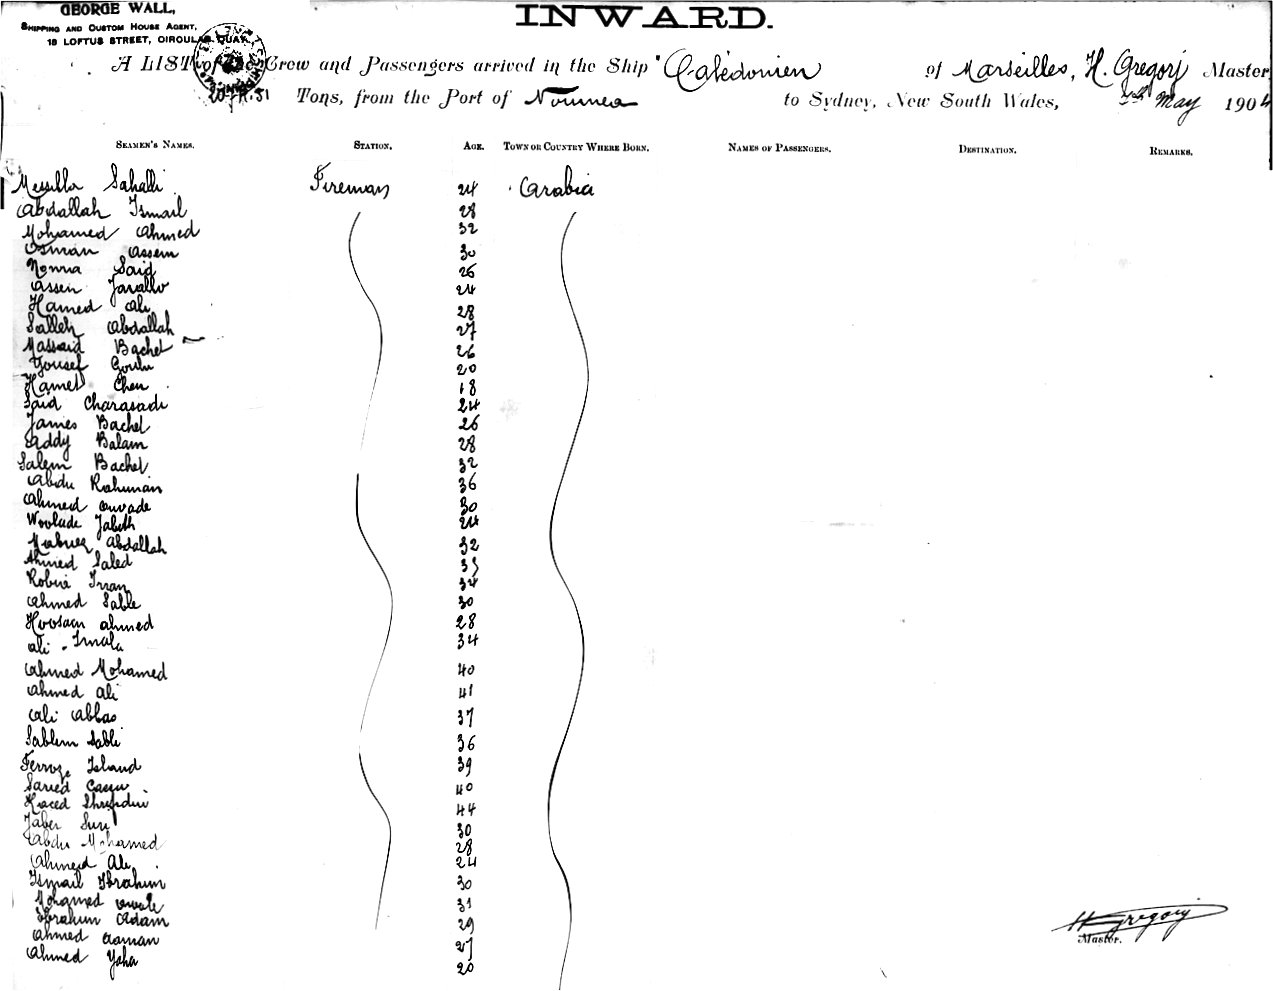 GEORGE WALL,
SHIPPING AND CUSTOM HOUSE AGENT,
18 LOFTUS STREET, CIRCULAR QUAY.
INWARD.
A LIST of the Crew and Passengers arrived in the Ship "Calédonien of Marseilles, H. Gregorj Master
Tons, from the Port of Noumea to Sydney, New South Wales, May 1904
SEAMEN'S NAMES. STATION. AGE. TOWN OR COUNTRY WHERE BORN. NAMES OF PASSENGERS. DESTINATION. REMARKS.
Sahalli Fireman 24 Arabia
Abdallah Ismail 28
Mohamed Ahmed 32
Osman Assem 30
Nonna Said 26
Assen Javallo 24
Hamed Ali 28
Salleh Abdallah 27
Massaid Bachet 26
Yousef Goulu 20
Hamet Chen 18
Said Charasadi 24
James Bachet 26
Saddy Balam 28
Salem Bachet 32
Abdu Rahuman 36
Ahmed Awade 30
Woolude Jabeth 24
Abdallah 32
Ahmed Saled 33
Robire 34
Ahmed Sable 30
Hoosam Ahmed 28
Ali - Imala 34
Ahmed Mohamed 40
Ahmed Ali 41
Ali Abbas 37
Sablem Sabli 36
Ferroze Island 39
Saried 40
Kaced 44
Jaber 30
Abdu Mohamed 28
Ahmed Ali 24
Ismail Ibrahim 30
Mohamed Awale 31
Ibrahim Adam 29
Ahmed Osman 27
Ahmed Yaha 20
H Gregorj
Master.